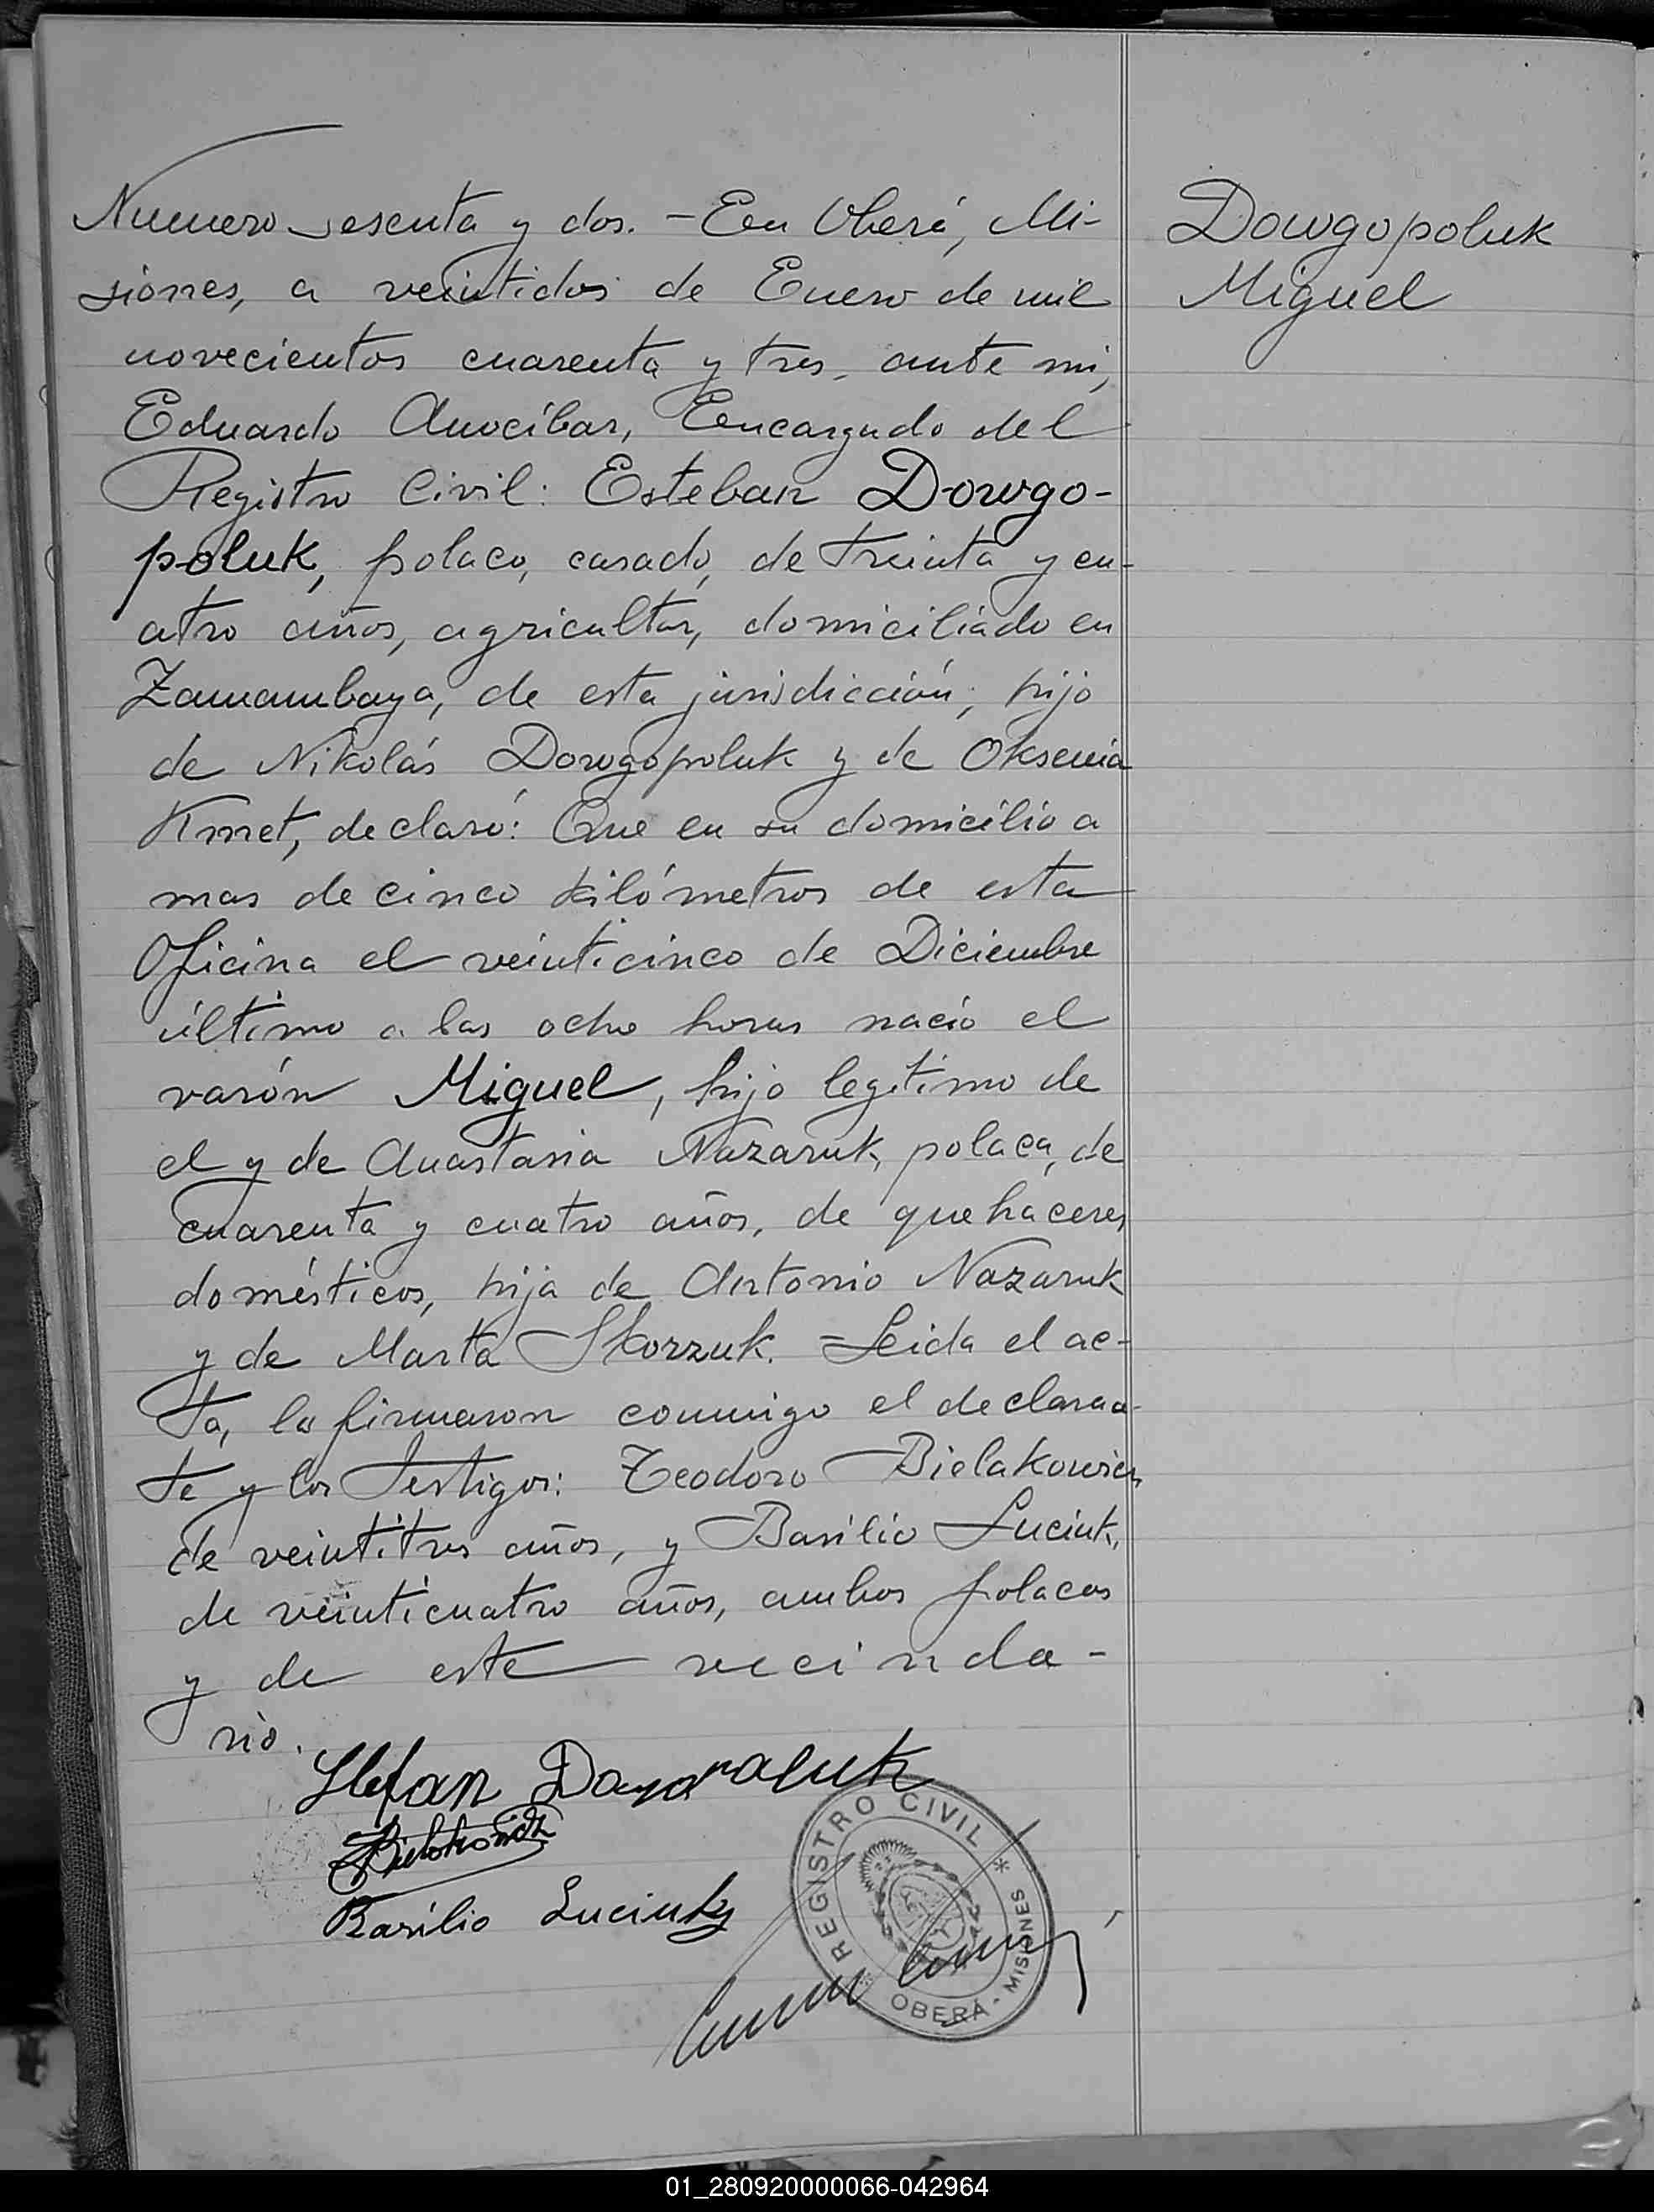 Numero sesenta y dos. - En Oberá, Mi-
siones, a veintidos de Enero de mil
novecientos cuarenta y tres, ante mi,
Eduardo Anocíbar, Encargado del
Registro Civil: Esteban Dowgo-
poluk, polaco, casado, de treinta y cu-
atro años, agricultor, domiciliado en
Zamambaya, de esta jurisdicción; hijo
de Nikolás Dowgopoluk y de Oksenia
Kmet, declaró: Que en su domicilio a
mas de cinco kilómetros de esta
Oficina el veinticinco de Diciembre
último a las ocho horas nació el
varón Miguel, hijo legítimo de
el y de Anastasia Nazaruk, polaca, de
cuarenta y cuatro años, de quehaceres
domésticos, hija de Antonio Nazaruk
y de Marta Skorzuk. = Leida el ac-
ta, la firmaron conmigo el declaran-
te y los testigos: Teodoro Bielakowicz
de veintitres años, y Basilio Luciuk,
de veinticuatro años, ambos polacos
y de este vecinda-
rio.
Stefan
Basilio Luciuk
REGISTRO CIVIL
OBERÁ - MISIONES
Dowgopoluk
Miguel
01_280920000066-042964